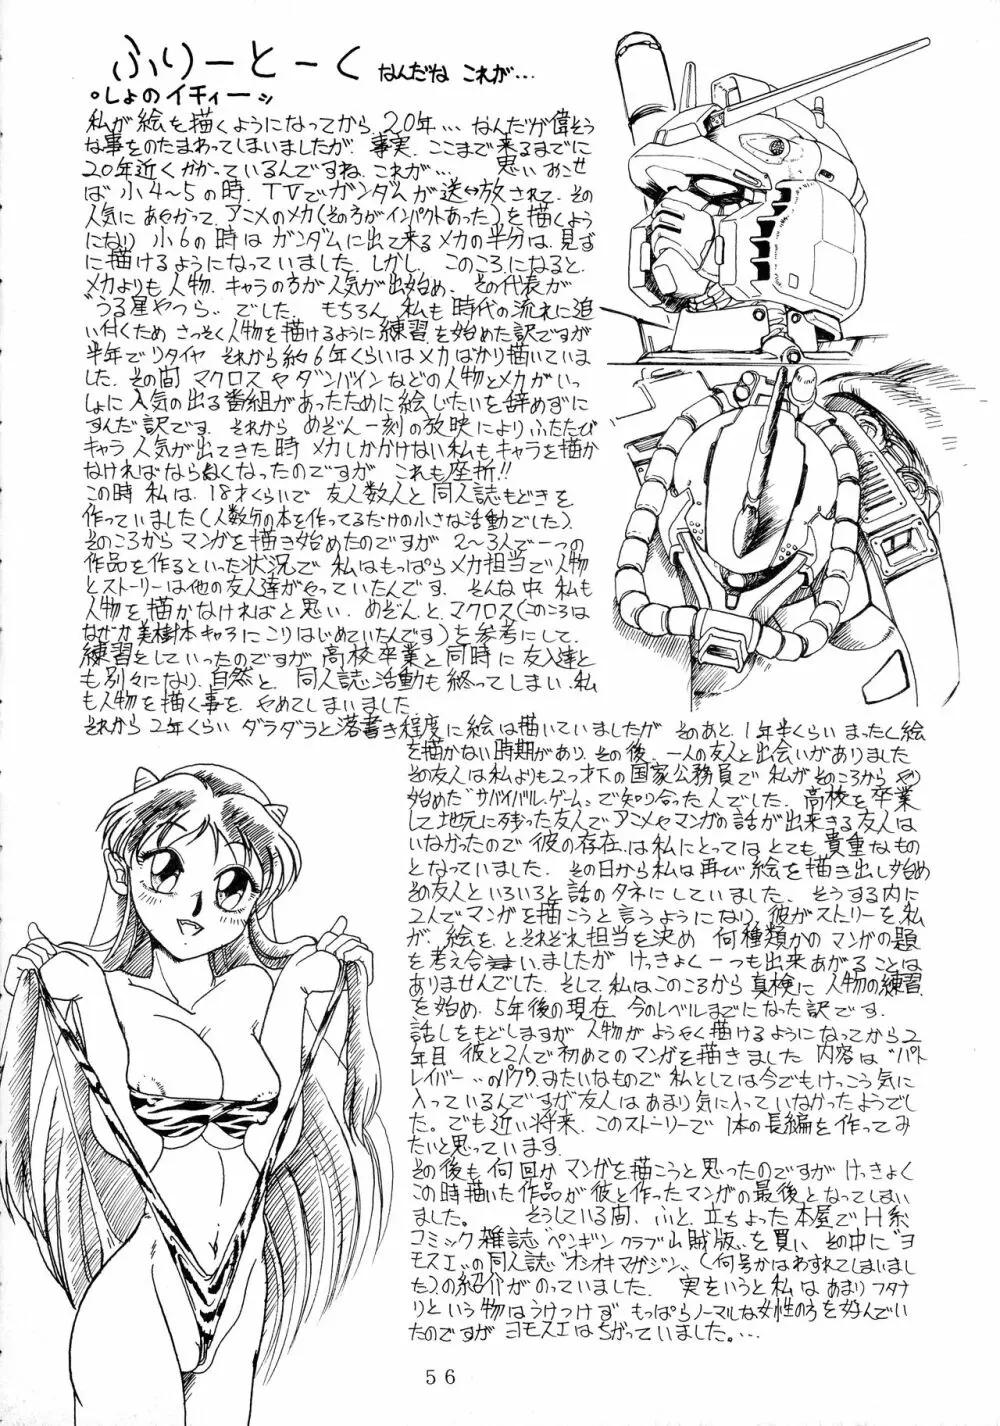 ふりーとーく なんだね これが…
○しょのイチィーッ
私が絵を描くようになってから、20年… なんだが偉そう
な事をのたまわってしまいましたが、事実、ここまで来るまでに
20年近くかかっているんですね、これが… 思いおこせ
ば 小4〜5の時、TVでガンダムが送↔放されて、その
人気に あやかって、アニメのメカ(その方がインパクトあった)を描くよう
になり 小6の時は ガンダムに出て来るメカの半分は、見ず
に描けるようになっていました。しかし、このころになると、
メカよりも人物、キャラの方が人気が出始め、その代表が
〝うる星やつら〟でした。もちろん、私も時代の流れに追
い付くため さっそく人物を描けるように練習を始めた訳ですが
半年でリタイヤ それから約6年くらいはメカばかり描いていま
した。その間 マクロスやダンバインなどの人物とメカがいっ
しょに人気の出る番組があったために絵じたいを辞めずに
すんだ訳です。それから めぞん一刻の放映によりふたたび
キャラ人気が出てきた時 メカしかかけない私もキャラを描か
なければならぬくなったのですが これも座折!!
この時 私は、18才くらいで 友人数人と同人誌もどきを
作っていました(人数分の本を作ってるだけの小さな活動でした)。
そのころから マンガを描き始めたのですが 2〜3人で一つの
作品を作るといった状況で 私はもっぱらメカ担当で人物
とストーリーは他の友人達がやっていたんです。そんな中、私も
人物を描かなければと思い、めぞんと、マクロス(このころは
なぜか美樹本キャラにこりはじめていたんです)を参考にして、
練習をしていったのですが 高校卒業と同時に友人達と
も別々になり、自然と、同人誌活動も終ってしまい、私
も人物を描く事を、やめてしまいました。
それから2年くらい ダラダラと落書き程度に絵は描いていましたが そのあと、1年半くらい まったく絵
を描かない時期があり、その後、一人の友人と出会いがありました
その友人は私よりも2つ才下の国家公務員で 私がそのころから や
り始めた〝サバイバルゲーム〟で知り合った人でした。高校を卒業
して地元に残った友人でアニメやマンガの話が出来きる友人は
いなかったので 彼の存在は私にとってはとても貴重なもの
となっていました。その日から私は再び絵を描き出し始め
その友人といろいろと話のタネにしていました。そうする内に
2人でマンガを描こうと言うようになり、彼がストーリーを、私
が、絵を、とそれぞれ担当を決め 何種類かの マンガの題
を考え合いましたが けっきょく一つも出来あがることは
ありませんでした。そして、私はこのころから真検に人物の練習
を始め、5年後の現在、今のレベルまでになった訳です。
話しをもどしますが 人物が ようやく描けるようになってから2
年目 彼と2人で初めてのマンガを描きました 内容は〝パト
レイバー〟のパクリみたいなもので 私としては今でもけっこう気に
入っているんですが友人は あまり気に入っていなかったようでし
た。でも近い将来、このストーリーで 1本の長編を作ってみ
たいと思っています。
その後も 何回か マンガを描こうと思ったのですが けっきょく
この時描いた作品が彼と作ったマンガの最後となってしまい
ました。そうしている間、ふと、立ちよった本屋で H系
コミック雑誌〝ペンギンクラブ山賊版〟を買い その中に〝ヨ
モスエ〟の同人誌〝オシオキマガジン〟(何号かはわすれてしまいまし
た)の紹介がのっていました。実をいうと私は あまりフタナ
リという物はうけつけず もっぱらノーマルな女性の方を好んでい
たのですが ヨモスエはちがっていました。…
56